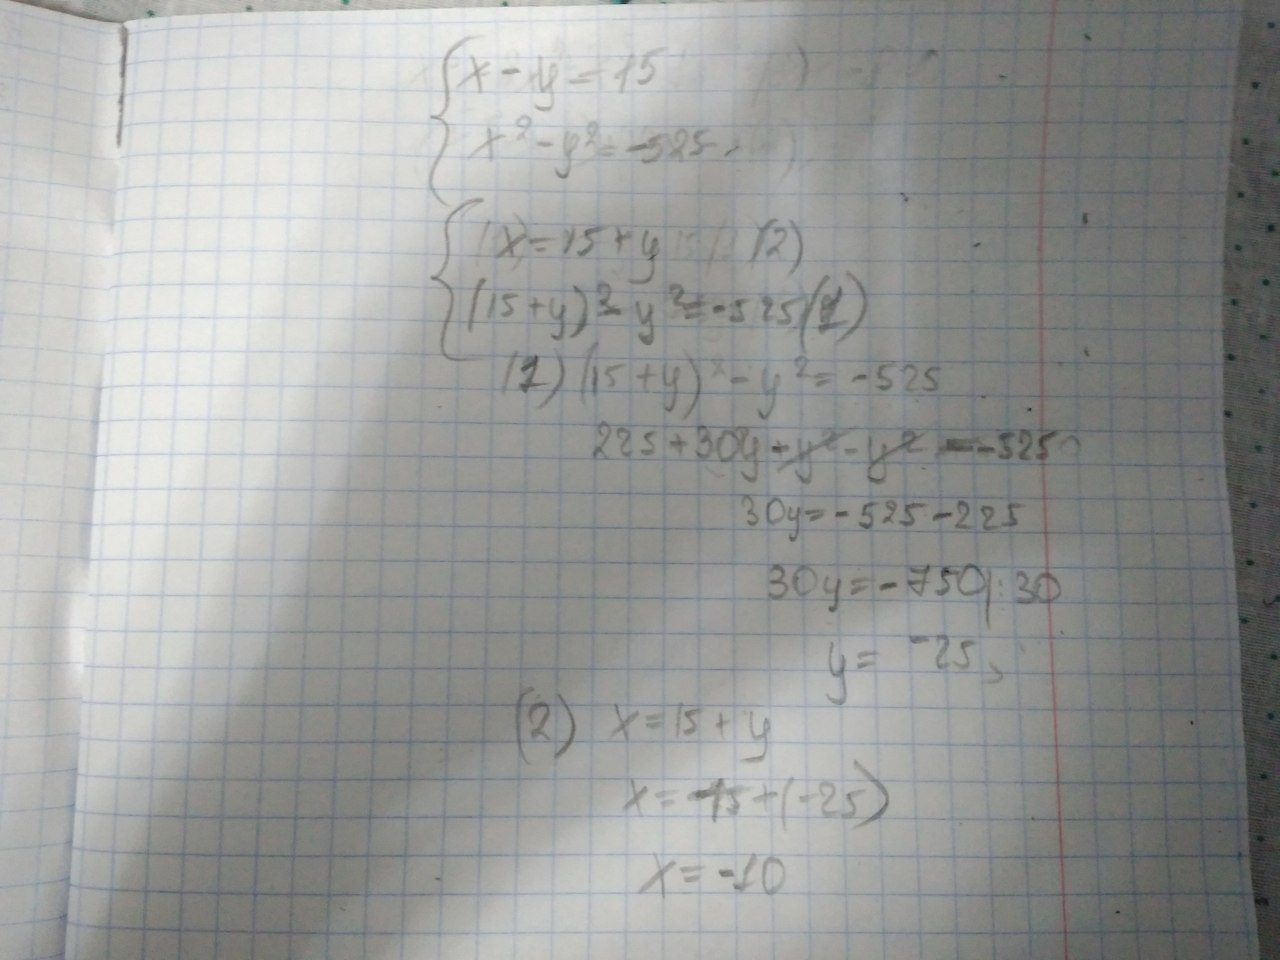 x - y = 15
x² - y² = -525
x = 15 + y (2)
(15 + y)² - y² = -525 (1)
(1) (15 + y)² - y² = -525
225 + 30y + y² - y² = -525
30y = -525 - 225
30y = -750 | : 30
y = -25,
(2) x = 15 + y
x = 15 + (-25)
x = -10